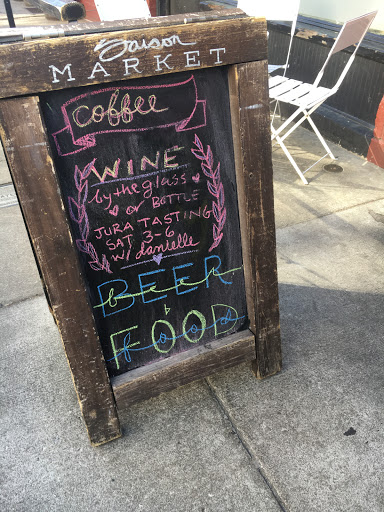 Saison
MARKET
coffee
WINE
by the glass
or BOTTLE
JURA TASTING
SAT 3-6
w/ danielle
BEER
beer
FOOD
food